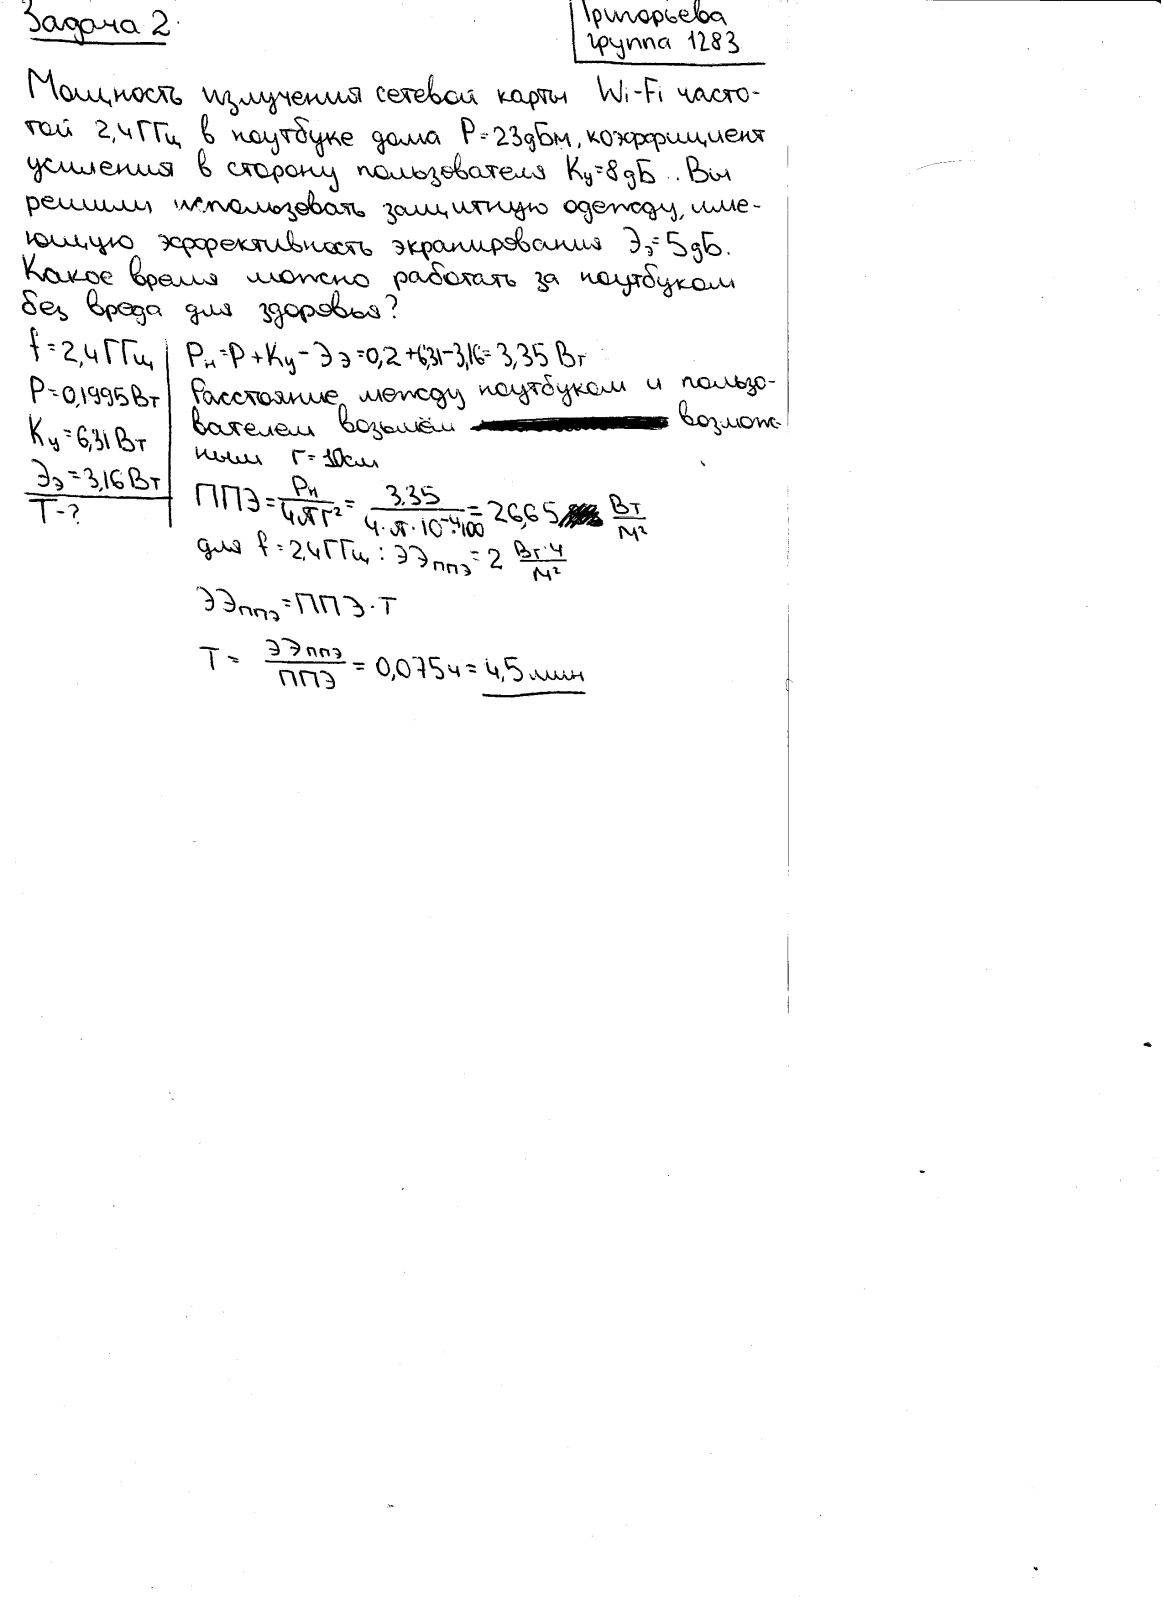 Задача 2.
Григорьева
группа 1283
Мощность излучения сетевой карты Wi-Fi часто-
той 2,4 ГГц в ноутбуке дома P=23дБм, коэффициент
усиления в сторону пользователя Kу=8дБ.. Вы
решили использовать защитную одежду, име-
ющую эффективность экранирования Ээ=5дБ.
Какое время можно работать за ноутбуком
без вреда для здоровья?
f=2,4ГГц
P=0,1995Вт
Kу=6,31Вт
Ээ=3,16Вт
T-?
Pн=P+Kу-Ээ=0,2+6,31-3,16=3,35 Вт
Расстояние между ноутбуком и пользо-
вателем возьмём возмож-
ным r=10см
ППЭ=Pн/4πr²=3,35/4·π·10⁻⁴·100=26,65 Вт/м²
для f=2,4ГГц: ЭЭппэ=2 Вт·ч/м²
ЭЭппэ=ППЭ·T
T=ЭЭппэ/ППЭ=0,075ч=4,5мин